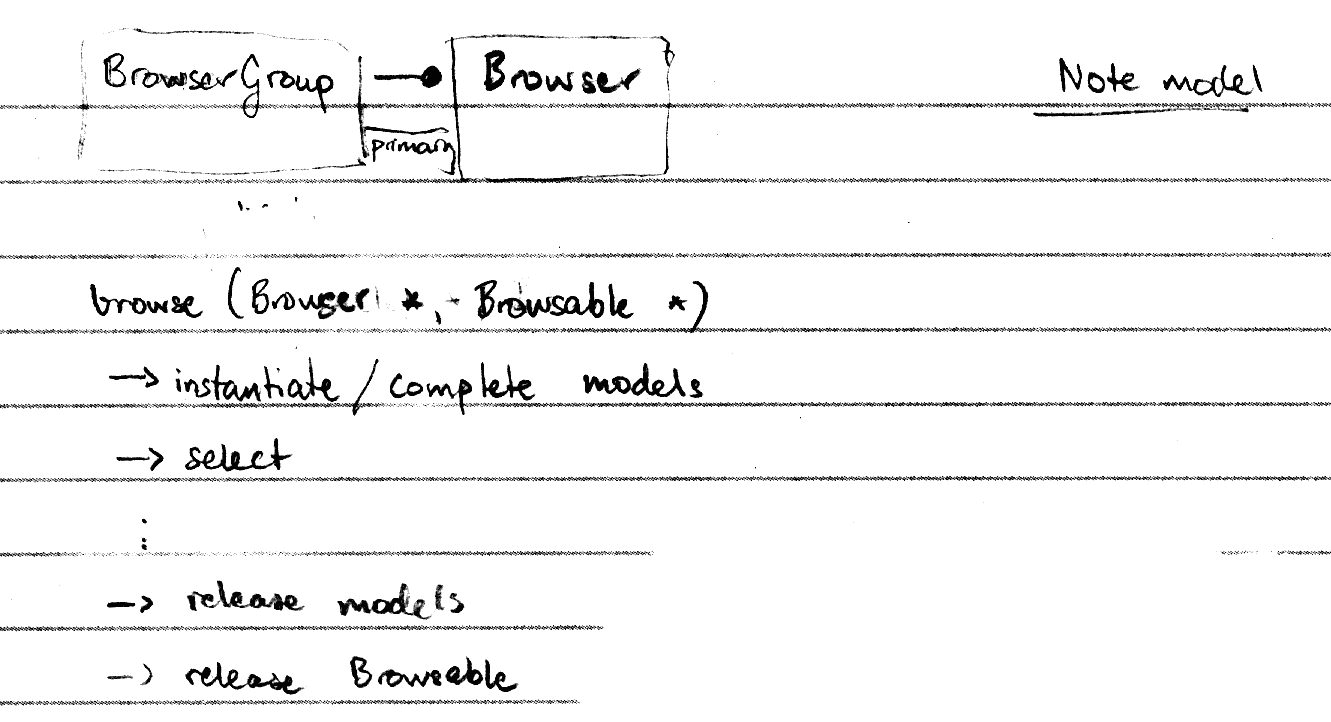 BrowserGroup Browser Note model
primary
browse (Browser *, Browsable *)
→ instantiate / complete models
→ select
⋮
→ release models
→ release Browseable